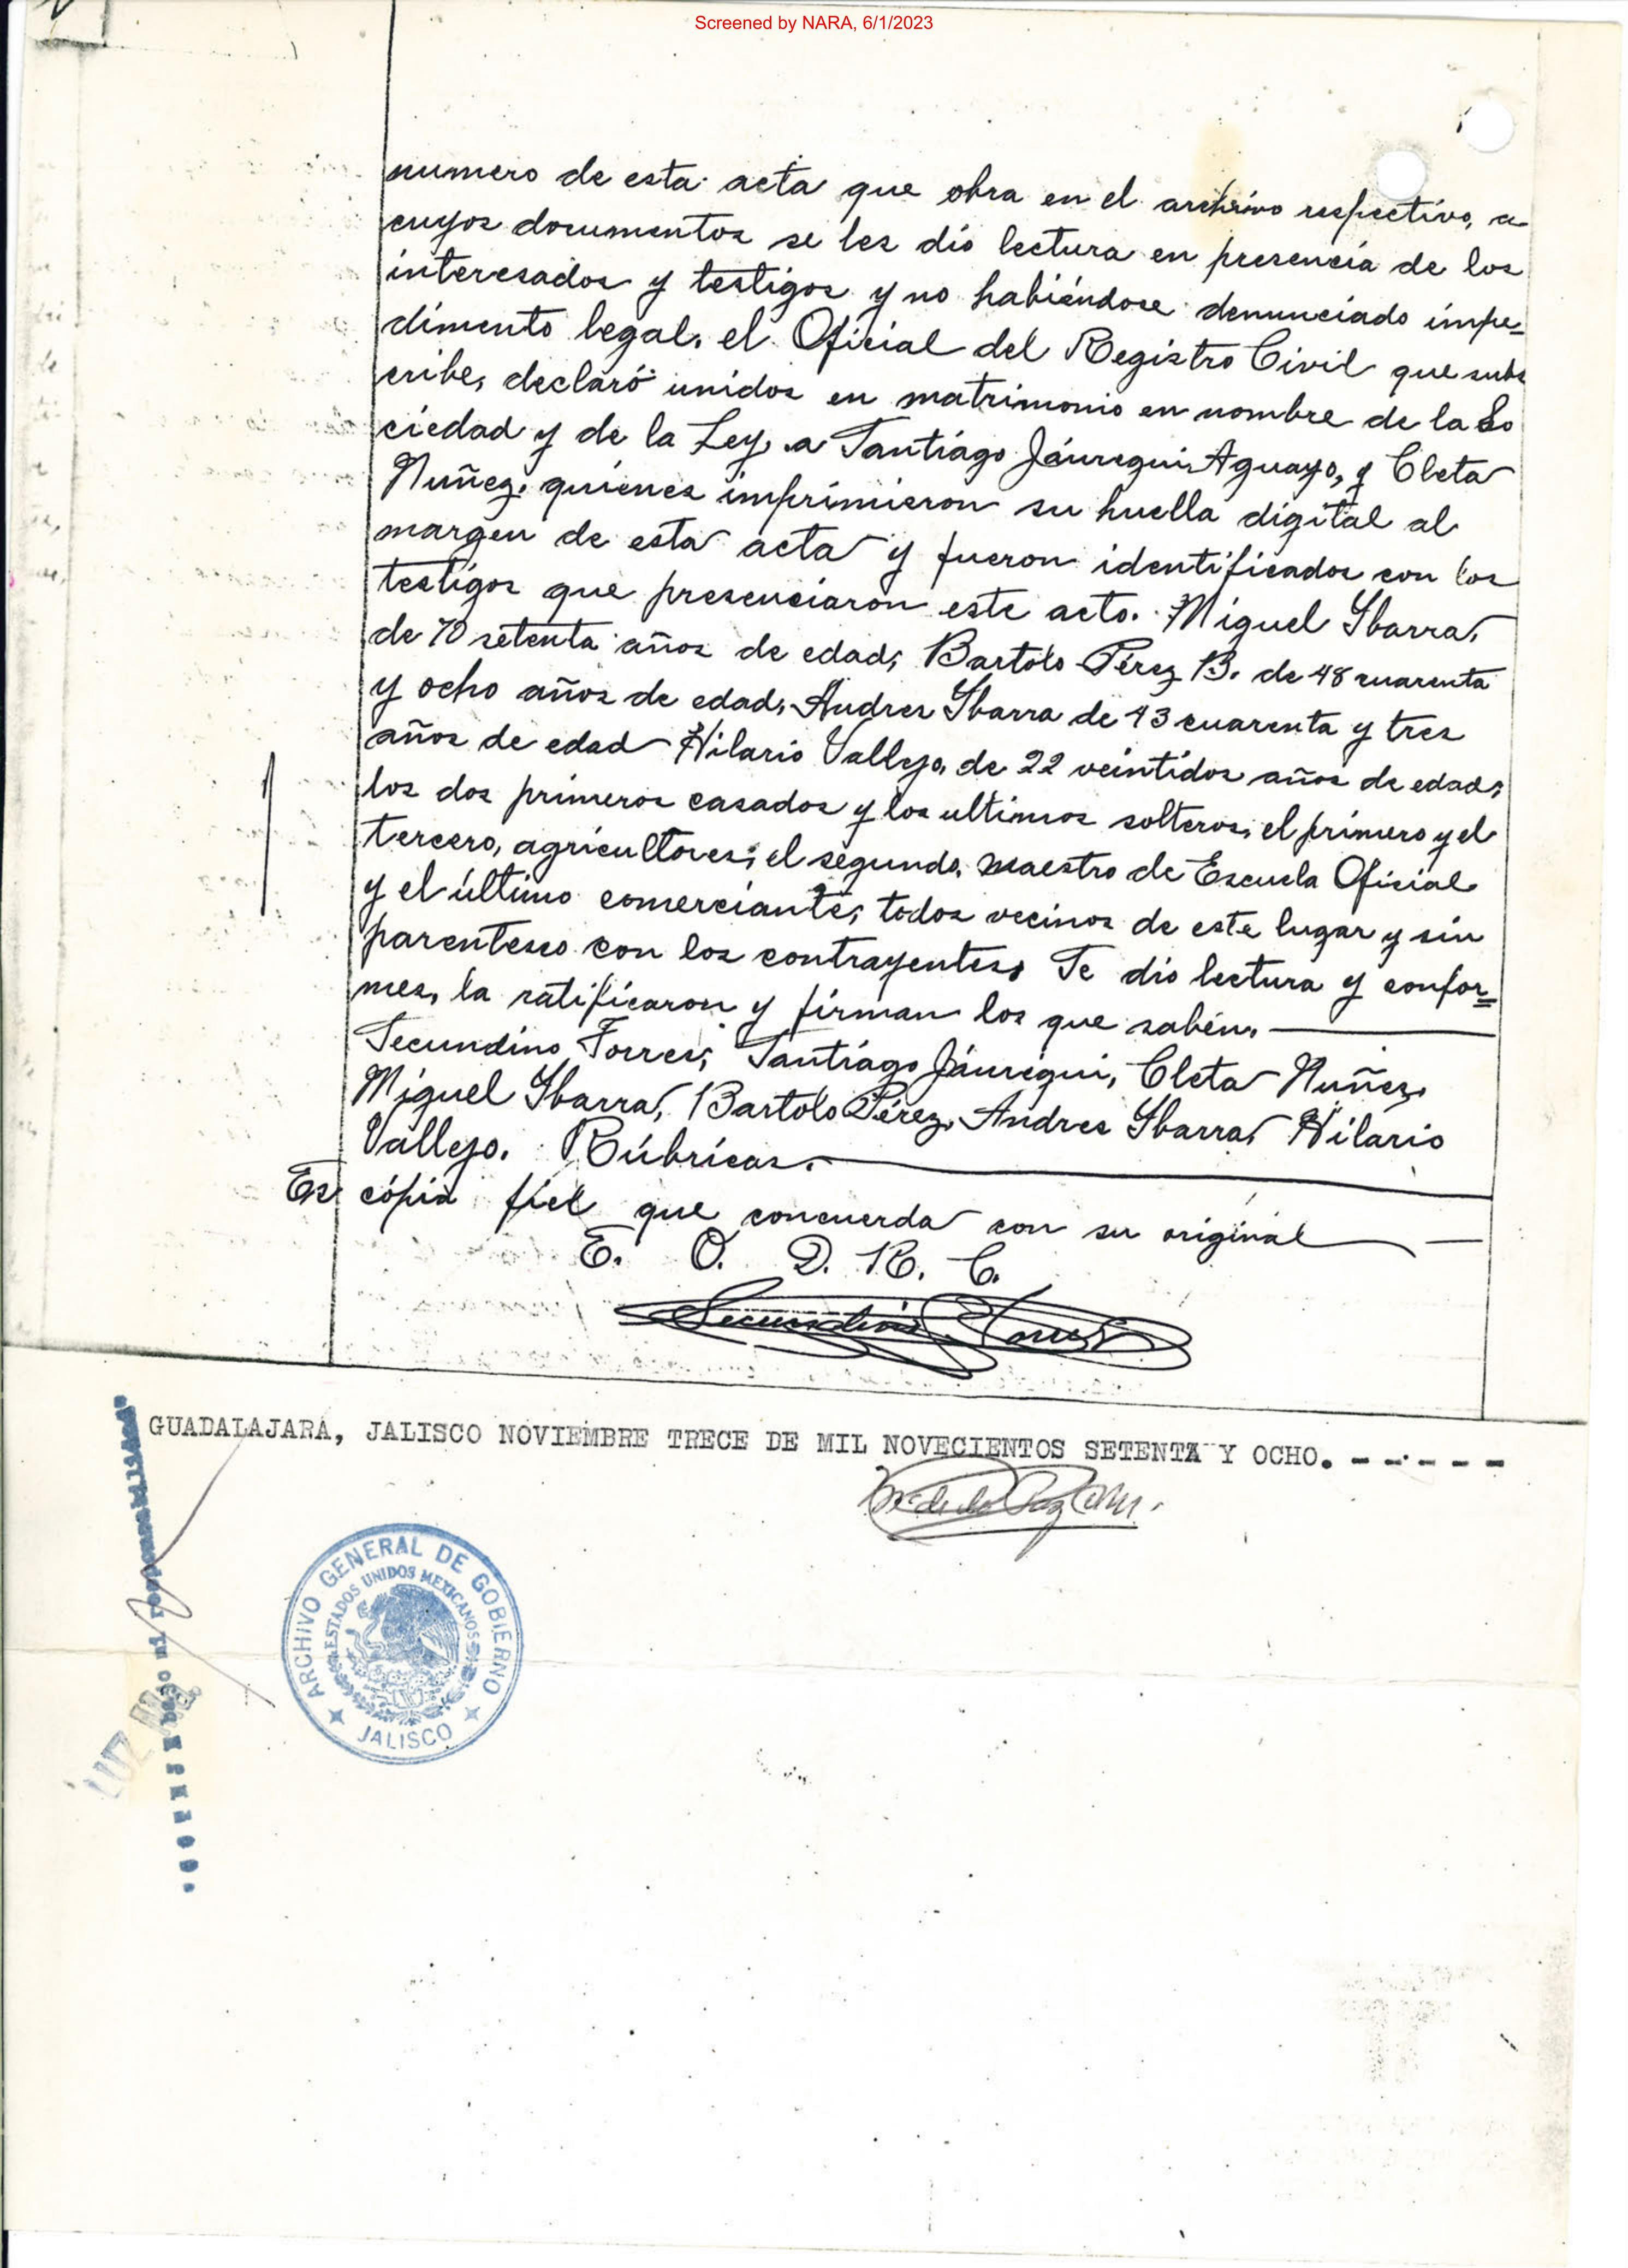 Screened by NARA, 6/1/2023
numero de esta acta que obra en el archivo respectivo, a
cuyos documentos se les dió lectura en presencia de los
interesados y testigos y no habiéndose denunciado impe=
dimento legal, el Oficial del Registro Civil que subs
cribe, declaró unidos en matrimonio en nombre de la So
ciedad y de la Ley, a Santiágo Jáuregui Aguayo, y Cleta
Nuñez, quiénes imprimieron su huella digital al
margen de esta acta y fueron identificados con los
testigos que presenciaron este acto. Miguel Ybarra,
de 70 setenta años de edad, Bartolo Pérez B. de 48 cuarenta
y ocho años de edad, Andres Ybarra de 43 cuarenta y tres
años de edad Hilario Vallejo, de 22 veintidos años de edad,
los dos primeros casados y los ultimos solteros, el primero y el
tercero, agricultores; el segundo, maestro de Escuela Oficial
y el último comerciante, todos vecinos de este lugar y sin
parentesco con los contrayentes. Se dió lectura y confor=
mes, la ratificaron y firman los que sabén.
Secundino Torres, Santiágo Jáuregui, Cleta Nuñez,
Miguel Ybarra, Bartolo Pérez, Andres Ybarra, Hilario
Vallejo. Rúbricas.
Es cópia fiel que concuerda con su original
E. O. D. R. C.
Secundino Torres
GUADALAJARA, JALISCO NOVIEMBRE TRECE DE MIL NOVECIENTOS SETENTA Y OCHO. - - - - - -
ARCHIVO GENERAL DE GOBIERNO
ESTADOS UNIDOS MEXICANOS
JALISCO
LUZ Ma.